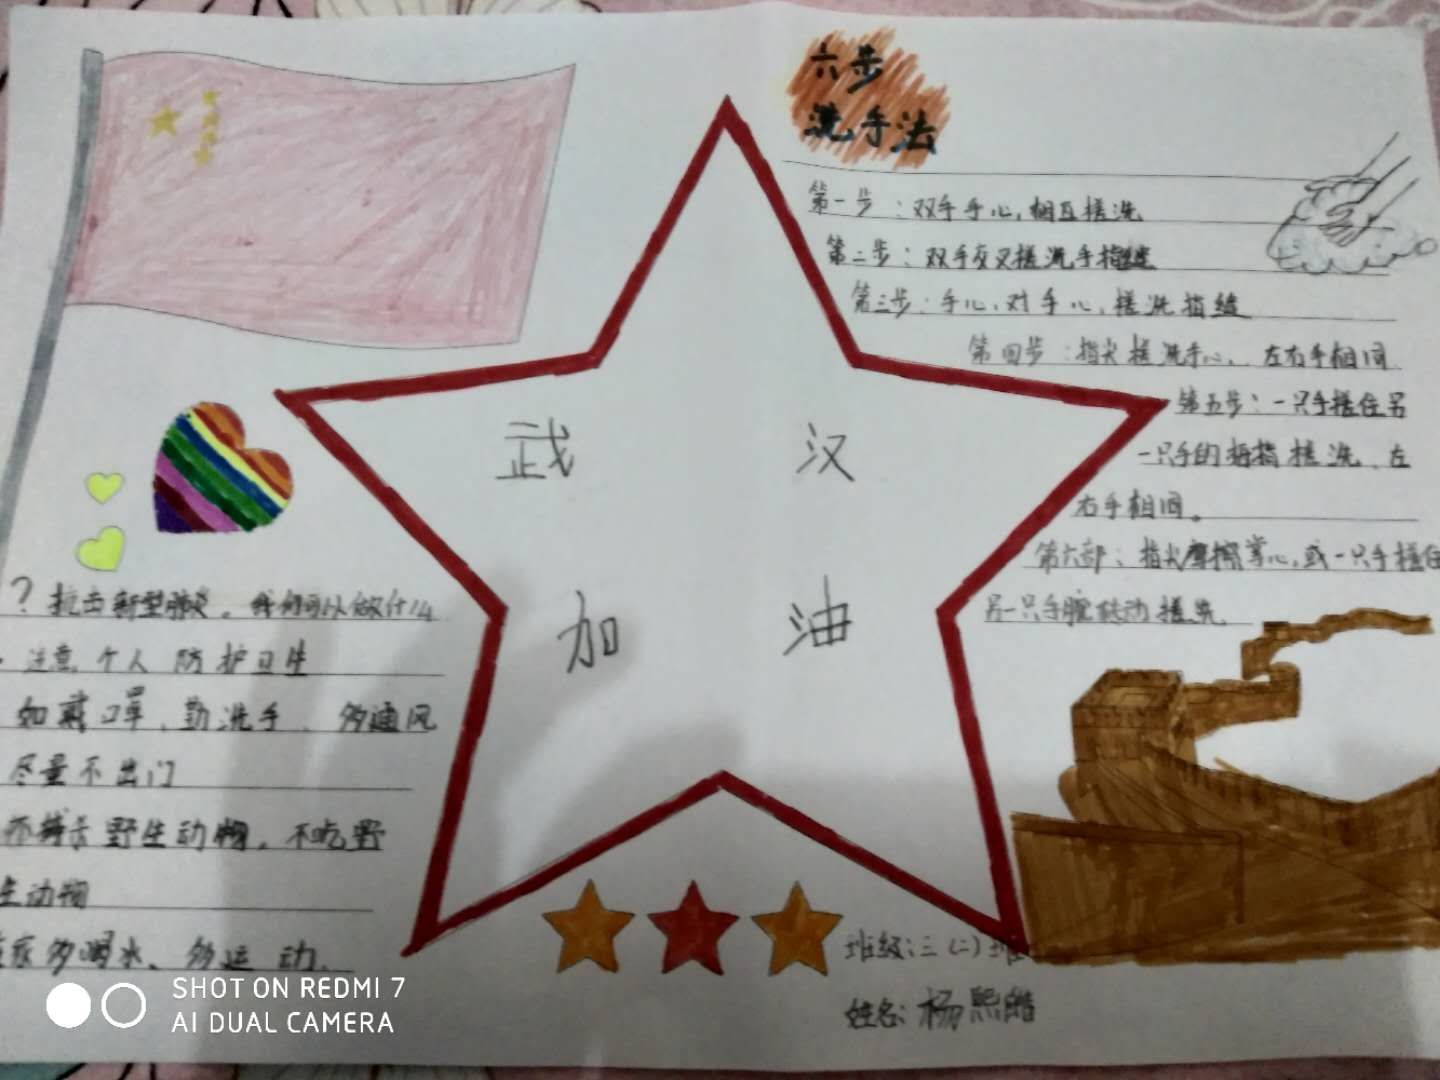 六步
洗手法
第一步：双手手心,相互搓洗
第二步：双手交叉搓洗手指缝
第三步：手心对手心,搓洗指缝
第四步：指尖搓洗手心、左右手相同
第五步：一只手搓住另
一只手的拇指搓洗、左
右手相同。
第六部：指尖摩擦掌心,或一只手搓住
另一只手腕转动搓洗
武 汉
加 油
？抗击新型肺炎。我们可以做什么
注意个人防护卫生
如戴口罩、勤洗手、多通风
尽量不出门
不捕杀野生动物。不吃野
生动物
多喝水、多运动.
班级:三(二)班
姓名:杨熙皓
SHOT ON REDMI 7
AI DUAL CAMERA